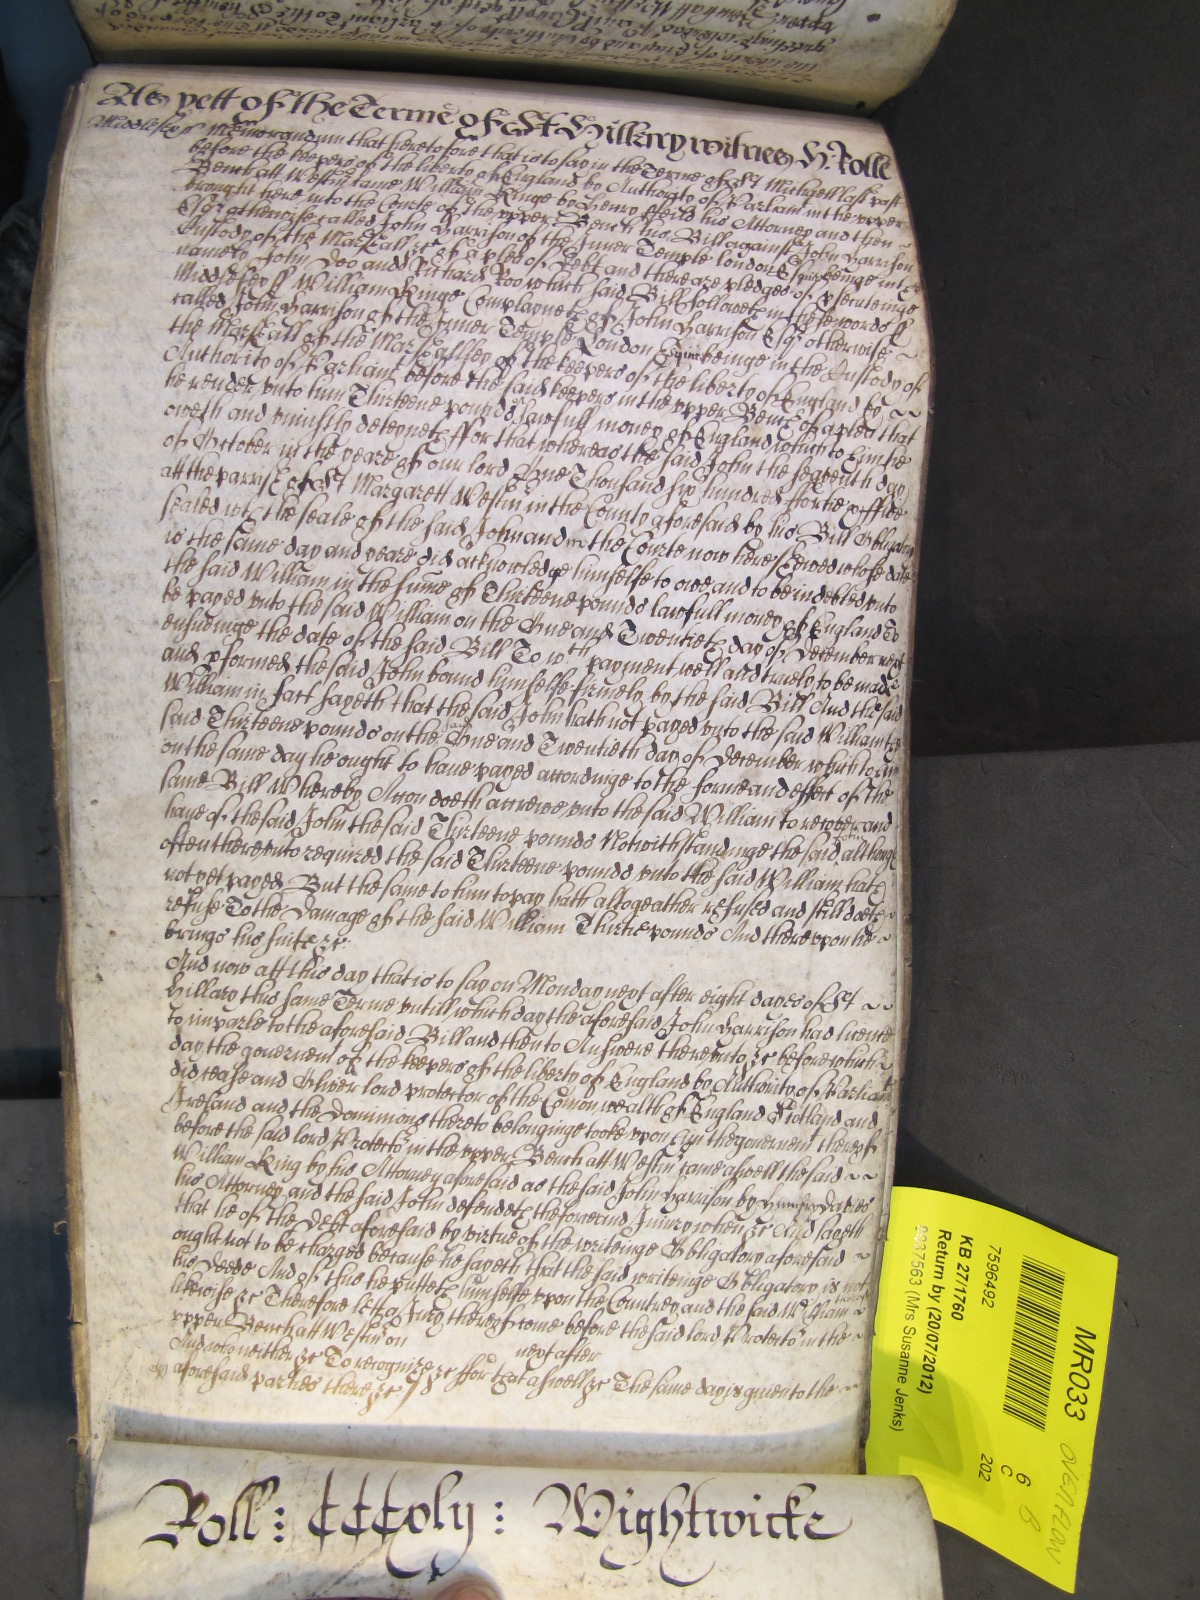 As yett of the Terme of St Hillary witnes H: Rolle
Middlesex ss Memorandum that heretofore that is to say in the Terme of St Michaell last past
before the keepers of the liberty of England by Authority of Parliamt in the upper
Bench att Westm came William Kinge by Henry ffeild his Attorney and then
brought here into the Courte of the upper Bench his Bill against John Harrison
Esqr otherwise called John Harrison of the Inner Temple London Esquir beinge in the
Custody of the Marshall &c of a plea of Debt and there are pledges of psecuteinge
namely John Doo and Richard Roo which said Bill followeth in these words ss
Middlesex ss William Kinge Complayneth of John Harrison Esqr otherwise
called John Harrison of the Inner Temple London Esquir beinge in the Custody of
the Marshall of the Marshallsey of the keepers of the liberty of England by
Authority of Parliamt before the said keepers in the upper Bench of a plea that
he render unto him Thirteene pounds of lawfull money of England which to him he
oweth and uniustly deteyneth ffor that whereas the said John the seaventh day
of October in the yeare of our lord One Thousand six hundred ffortie
att the parrish of St Margarett Westm in the County aforesaid by his Bill Obligatory
sealed wth the seale of the said John and in the Courte now here shewed whose date
is the same day and yeare did acknowledge himselfe to owe and to be indebted unto
the said William in the sume of Thirteene pounds lawfull money of England To
be payed unto the said William on the One and Twentieth day of December next
ensueinge the date of the said Bill To wch payment well and truely to be made
and pformed the said John bound himselfe firmely by the said Bill And the said
William in fact sayeth that the said John hath not payed unto the said William the
said Thirteene pounds on the said One and Twentieth day of December which to him
on the same day he ought to have payed accordinge to the forme and effect of the
same Bill Whereby Accon doeth accrewe unto the said William to recover and
have of the said John the said Thirteene pounds Notwithstandinge the said John although
often thereunto required the said Thirteene pounds unto the said William hath
not yet payed But the same to him to pay hath altogeather refused and still doeth
refuse To the Damage of the said William Thirtie pounds And thereupon he
brings his suite &c
And now att this day that is to say on Monday next after eight dayes of St
Hillary this same Terme untill which day the aforesaid John Harrison had licence
to imparle to the aforesaid Bill and then to Answere thereunto &c before which
day the goverment of the keepers of the liberty of England by Authority of Parliamt
did cease and Oliver lord protector of the Comon wealth of England Scotland and
Ireland and the Dominions thereto belonginge tooke upon him the goverment thereof
before the said lord Protector in the upper Bench att Westm came aswell the said
William King by his Attorney aforesaid as the said John Harrison by Humfry Davies
his Attorney and the said John defendeth the force and Iniury when &c And sayeth
that he of the Debt aforesaid by virtue of the writeinge Obligatory aforesaid
ought not to be charged because he sayeth that the said writeinge Obligatory is not
his Deede And of this he putteth himselfe upon the Countrey and the said William
likewise &c Therefore lett a Iury thereof come before the said lord Protector in the
upper Bench att Westm on next after
And who neither &c To recognize &c ffor that aswell &c The same day is given to the
aforesaid parties there &c
Roll: CCColy: Wightwicke
MR033
OVERFLOW
7596492
6
C
B
KB 27/1760
Return by (20/07/2012)
(Mrs Susanne Jenks)
202